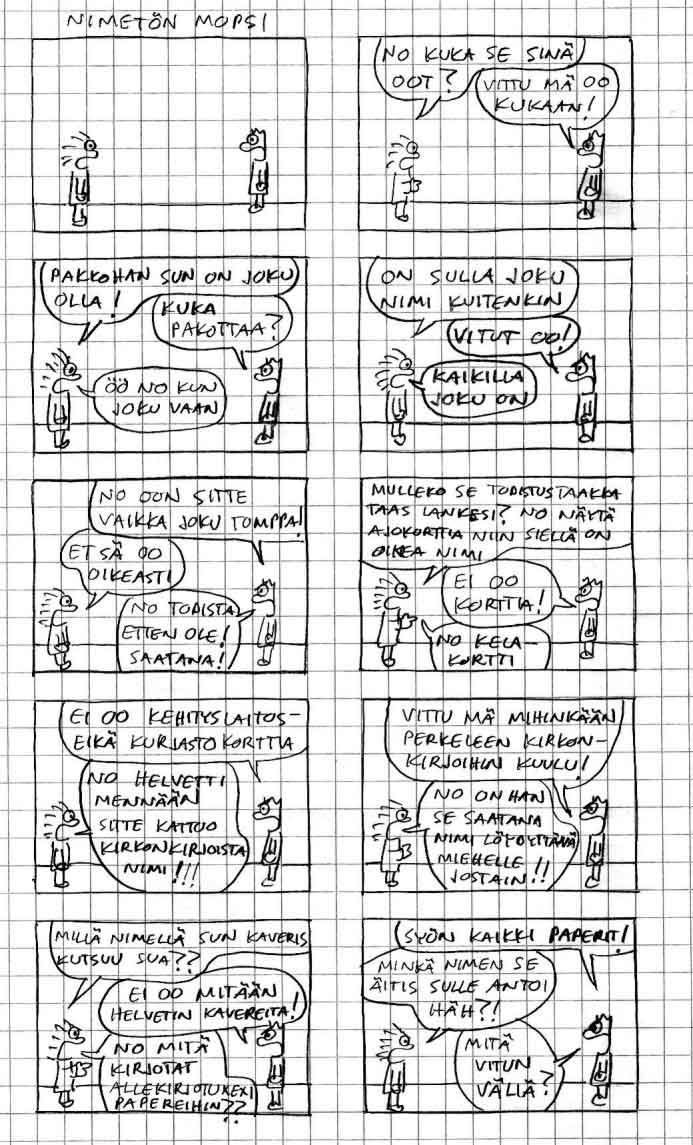 NIMETÖN MOPSI
NO KUKA SE SINÄ
OOT?
VITTU MÄ OO
KUKAAN!
PAKKOHAN SUN ON JOKU
OLLA!
KUKA
PAKOTTAA?
ÖÖ NO KUN
JOKU VAAN
ON SULLA JOKU
NIMI KUITENKIN
VITUT OO!
KAIKILLA
JOKU ON
NO OON SITTE
VAIKKA JOKU TOMPPA!
ET SÄ OO
OIKEASTI
NO TODISTA
ETTEN OLE!
SAATANA!
MULLEKO SE TODISTUSTAAKKA
TAAS LANKESI? NO NÄYTÄ
AJOKORTTIA NIIN SIELLÄ ON
OIKEA NIMI
EI OO
KORTTIA!
NO KELA-
KORTTI
EI OO KEHITYSLAITOS-
EIKÄ KIRJASTOKORTTIA
NO HELVETTI
MENNÄÄN
SITTE KATTOO
KIRKONKIRJOISTA
NIMI!!!
VITTU MÄ MIHINKÄÄN
PERKELEEN KIRKON-
KIRJOIHIN KUULU!
NO ONHAN
SE SAATANA
NIMI LÖYDYTTÄVÄ
MIEHELLE
JOSTAIN!!
MILLÄ NIMELLÄ SUN KAVERIS
KUTSUU SUA??
EI OO MITÄÄN
HELVETIN KAVEREITA!
NO MITÄ
KIRJOTAT
ALLEKIRJOTUKEKSI
PAPEREIHIN??
SYÖN KAIKKI PAPERIT!
MINKÄ NIMEN SE
ÄITIS SULLE ANTOI
HÄH?!
MITÄ
VITUN
VÄLIÄ?